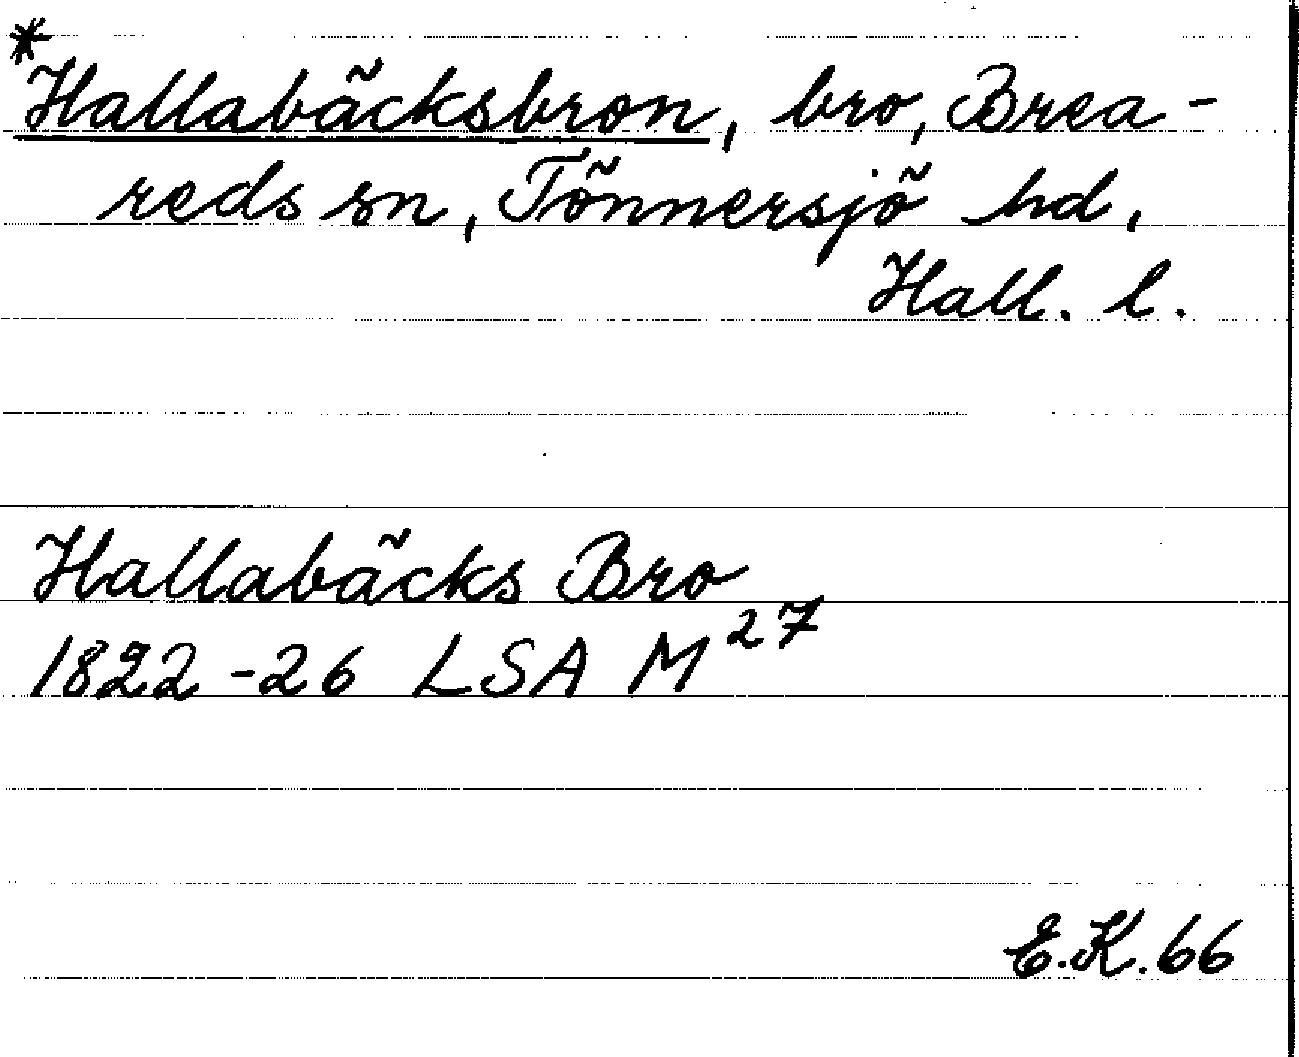 *Hallabäcksbron, bro, Brea-
reds sn, Tönnersjö hd,
Hall. l.
Hallabäcks Bro
1822-26 LSA M 27
E.K.66